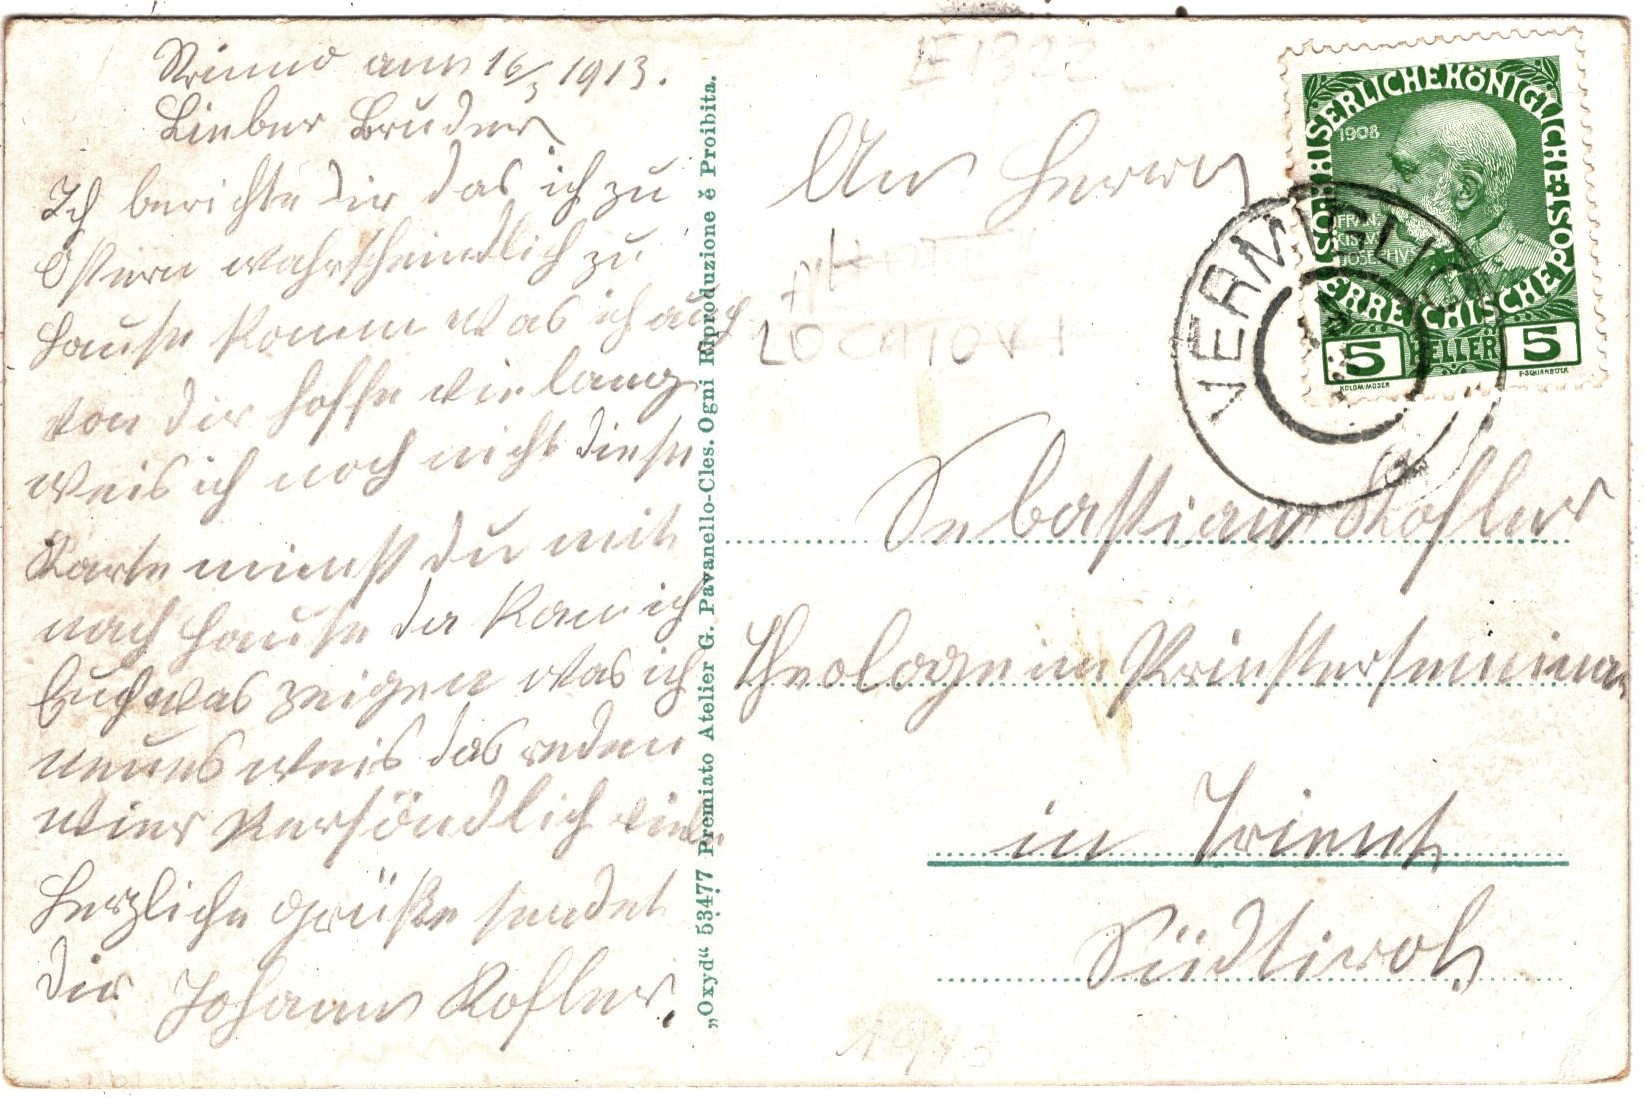 am 16/3 1913.
Lieber Bruder
Ich berichte Dir das ich zu
Ostern wahrscheindlich zu
Hause komm was ich auch
von dir hoffe wie lang
weis ich noch nicht diese
Karte nimst du mit
nach Hause da kan ich
Euch was zeigen was ich
neues weis das reden
wier Persöndlich viele
Herzliche grüße sendet
Dir Johann Kofler.
„Oxyd“ 53477 Premiato Atelier G. Pavanello-Cles. Ogni Riproduzione è Proibita.
E1322
An Herrn
LOCATORI
Sebastian Kofler
Theologe im Priesterseminar
in Trient
Südtirol
1913
KAISERLICHE KÖNIGLICHE ÖSTERREICHISCHE POST
1908
FRANCISCVS JOSEPHVS I
5 HELLER 5
KOLOM. MOSER
F. SCHIRNBÖCK
VERMIGLIO
a